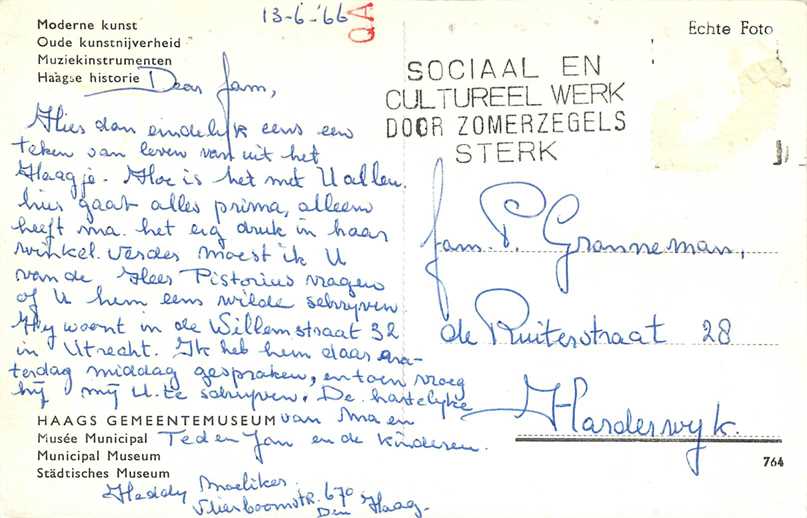 13-6-'66
QA
Moderne kunst
Oude kunstnijverheid
Muziekinstrumenten
Haagse historie
Echte Foto
SOCIAAL EN
CULTUREEL WERK
DOOR ZOMERZEGELS
STERK
Dear fam,
Hier dan eindelijk eens een
teken van leven van uit het
Haagje. Hoe is het met U allen.
hier gaat alles prima, alleen
heeft ma. het erg druk in haar
winkel. Verder moest ik U
van de Heer Pistorius vragen
of U hem eens wilde schrijven
Hij woont in de Willemstraat 32
in Utrecht. Ik heb hem daar za-
terdag middag gesproken, en toen vroeg
hij mij U te schrijven. De hartelijke
van Ma en
Ted en Jan en de kinderen.
HAAGS GEMEENTEMUSEUM
Musée Municipal
Municipal Museum
Städtisches Museum
Heddy
Vlierboomstr. 670
Den Haag.
fam. P. Granneman,
de Ruiterstraat 28
Harderwijk.
764